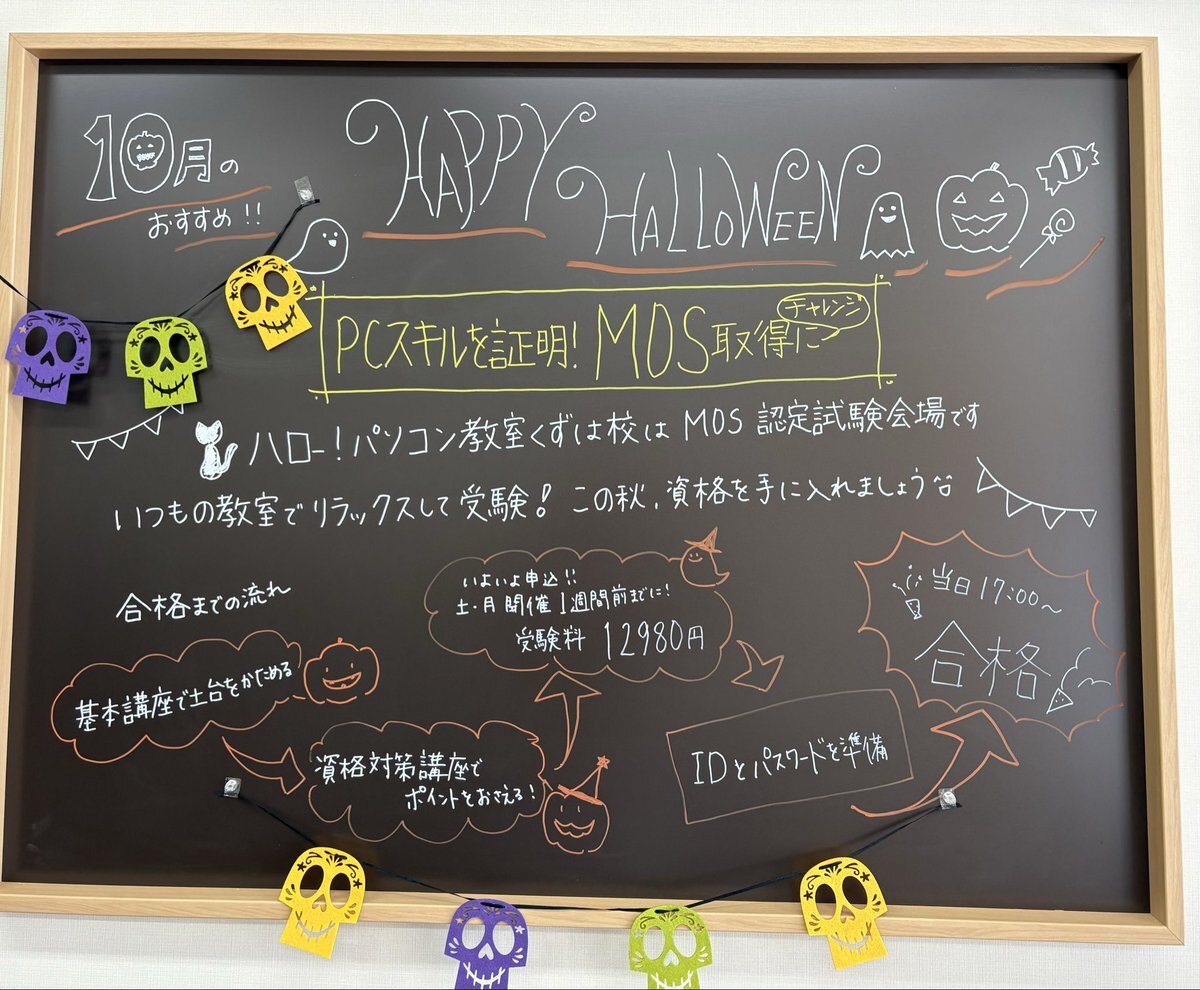 10月の
おすすめ!!
HAPPY
HALLOWEEN
PCスキルを証明! MOS取得に
チャレンジ
ハロー!パソコン教室くずは校は MOS 認定試験会場です
いつもの教室でリラックスして受験! この秋、資格を手に入れましょう
合格までの流れ
基本講座で土台をかためる
資格対策講座で
ポイントをおさえる!
いよいよ申込!!
土・月開催1週間前までに!
受験料 12980円
IDとパスワードを準備
当日17:00~
合格